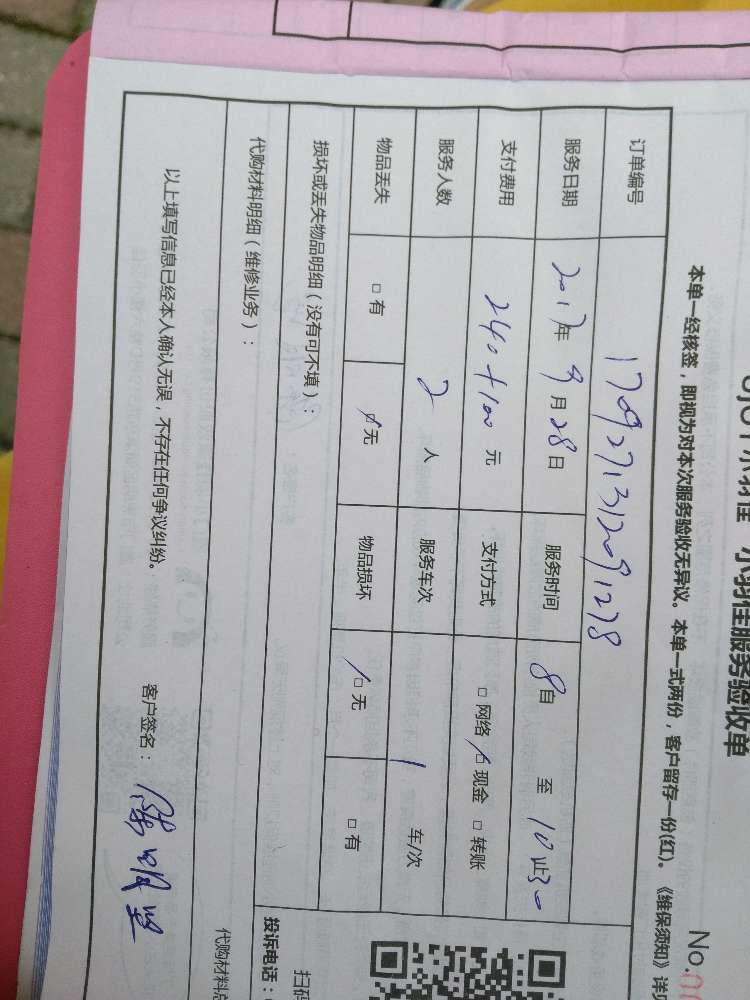 小羽佳服务验收单
No.
本单一经核签，即视为对本次服务验收无异议。本单一式两份，客户留存一份(红)。《维保须知》详
订单编号 1709271312091278
服务日期 2017年 9月28日 服务时间 8自 至 10止30
支付费用 240+100 元 支付方式 □网络 □现金 □转账
服务人数 2 人 服务车次 1 车/次
物品丢失 □有 □无 物品损坏 □无 □有
损坏或丢失物品明细（没有可不填）：
代购材料明细（维修业务）：
代购材料总
以上填写信息已经本人确认无误，不存在任何争议纠纷。 客户签名：
投诉电话：
扫码